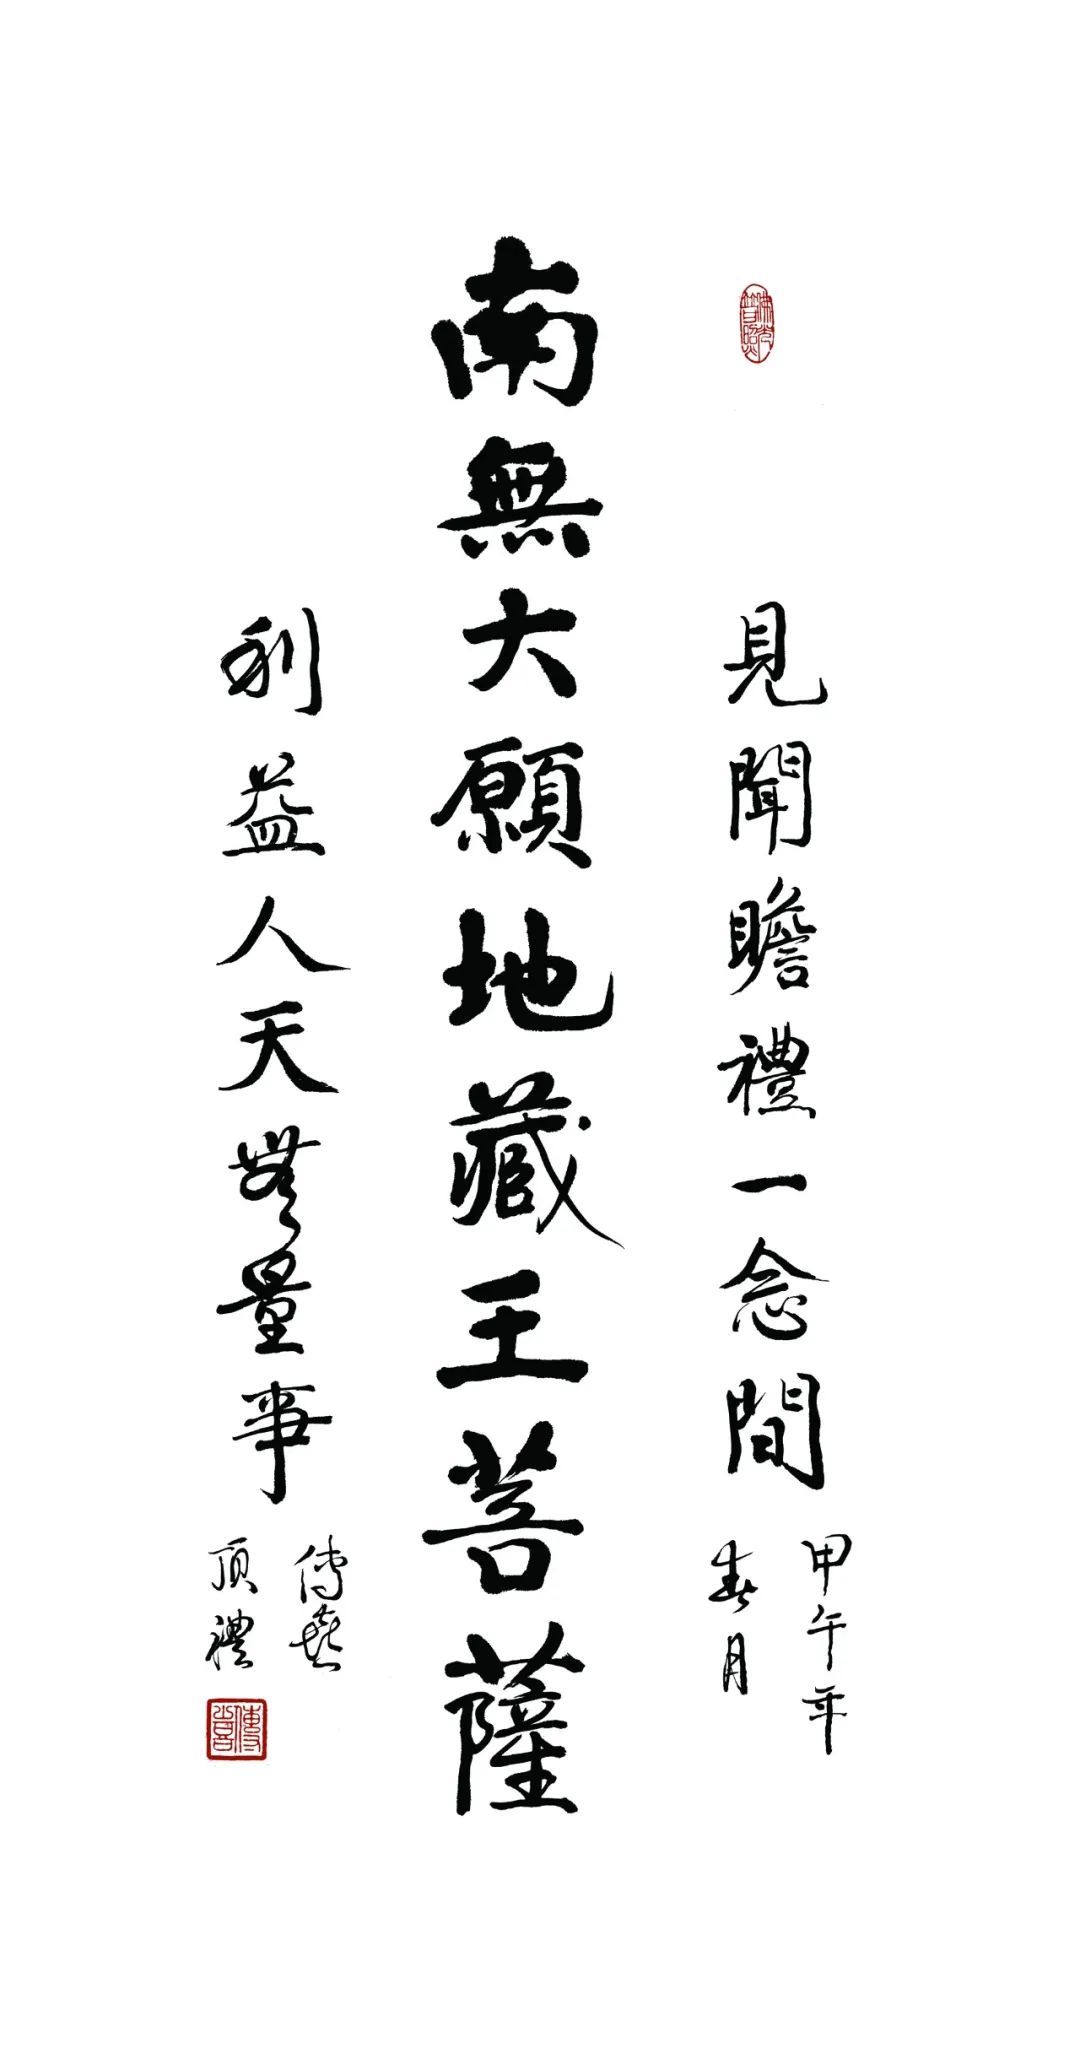 佛光普照
見聞瞻禮一念間
甲午年
春月
南無大願地藏王菩薩
利益人天無量事
傳喜
頂禮
傳喜